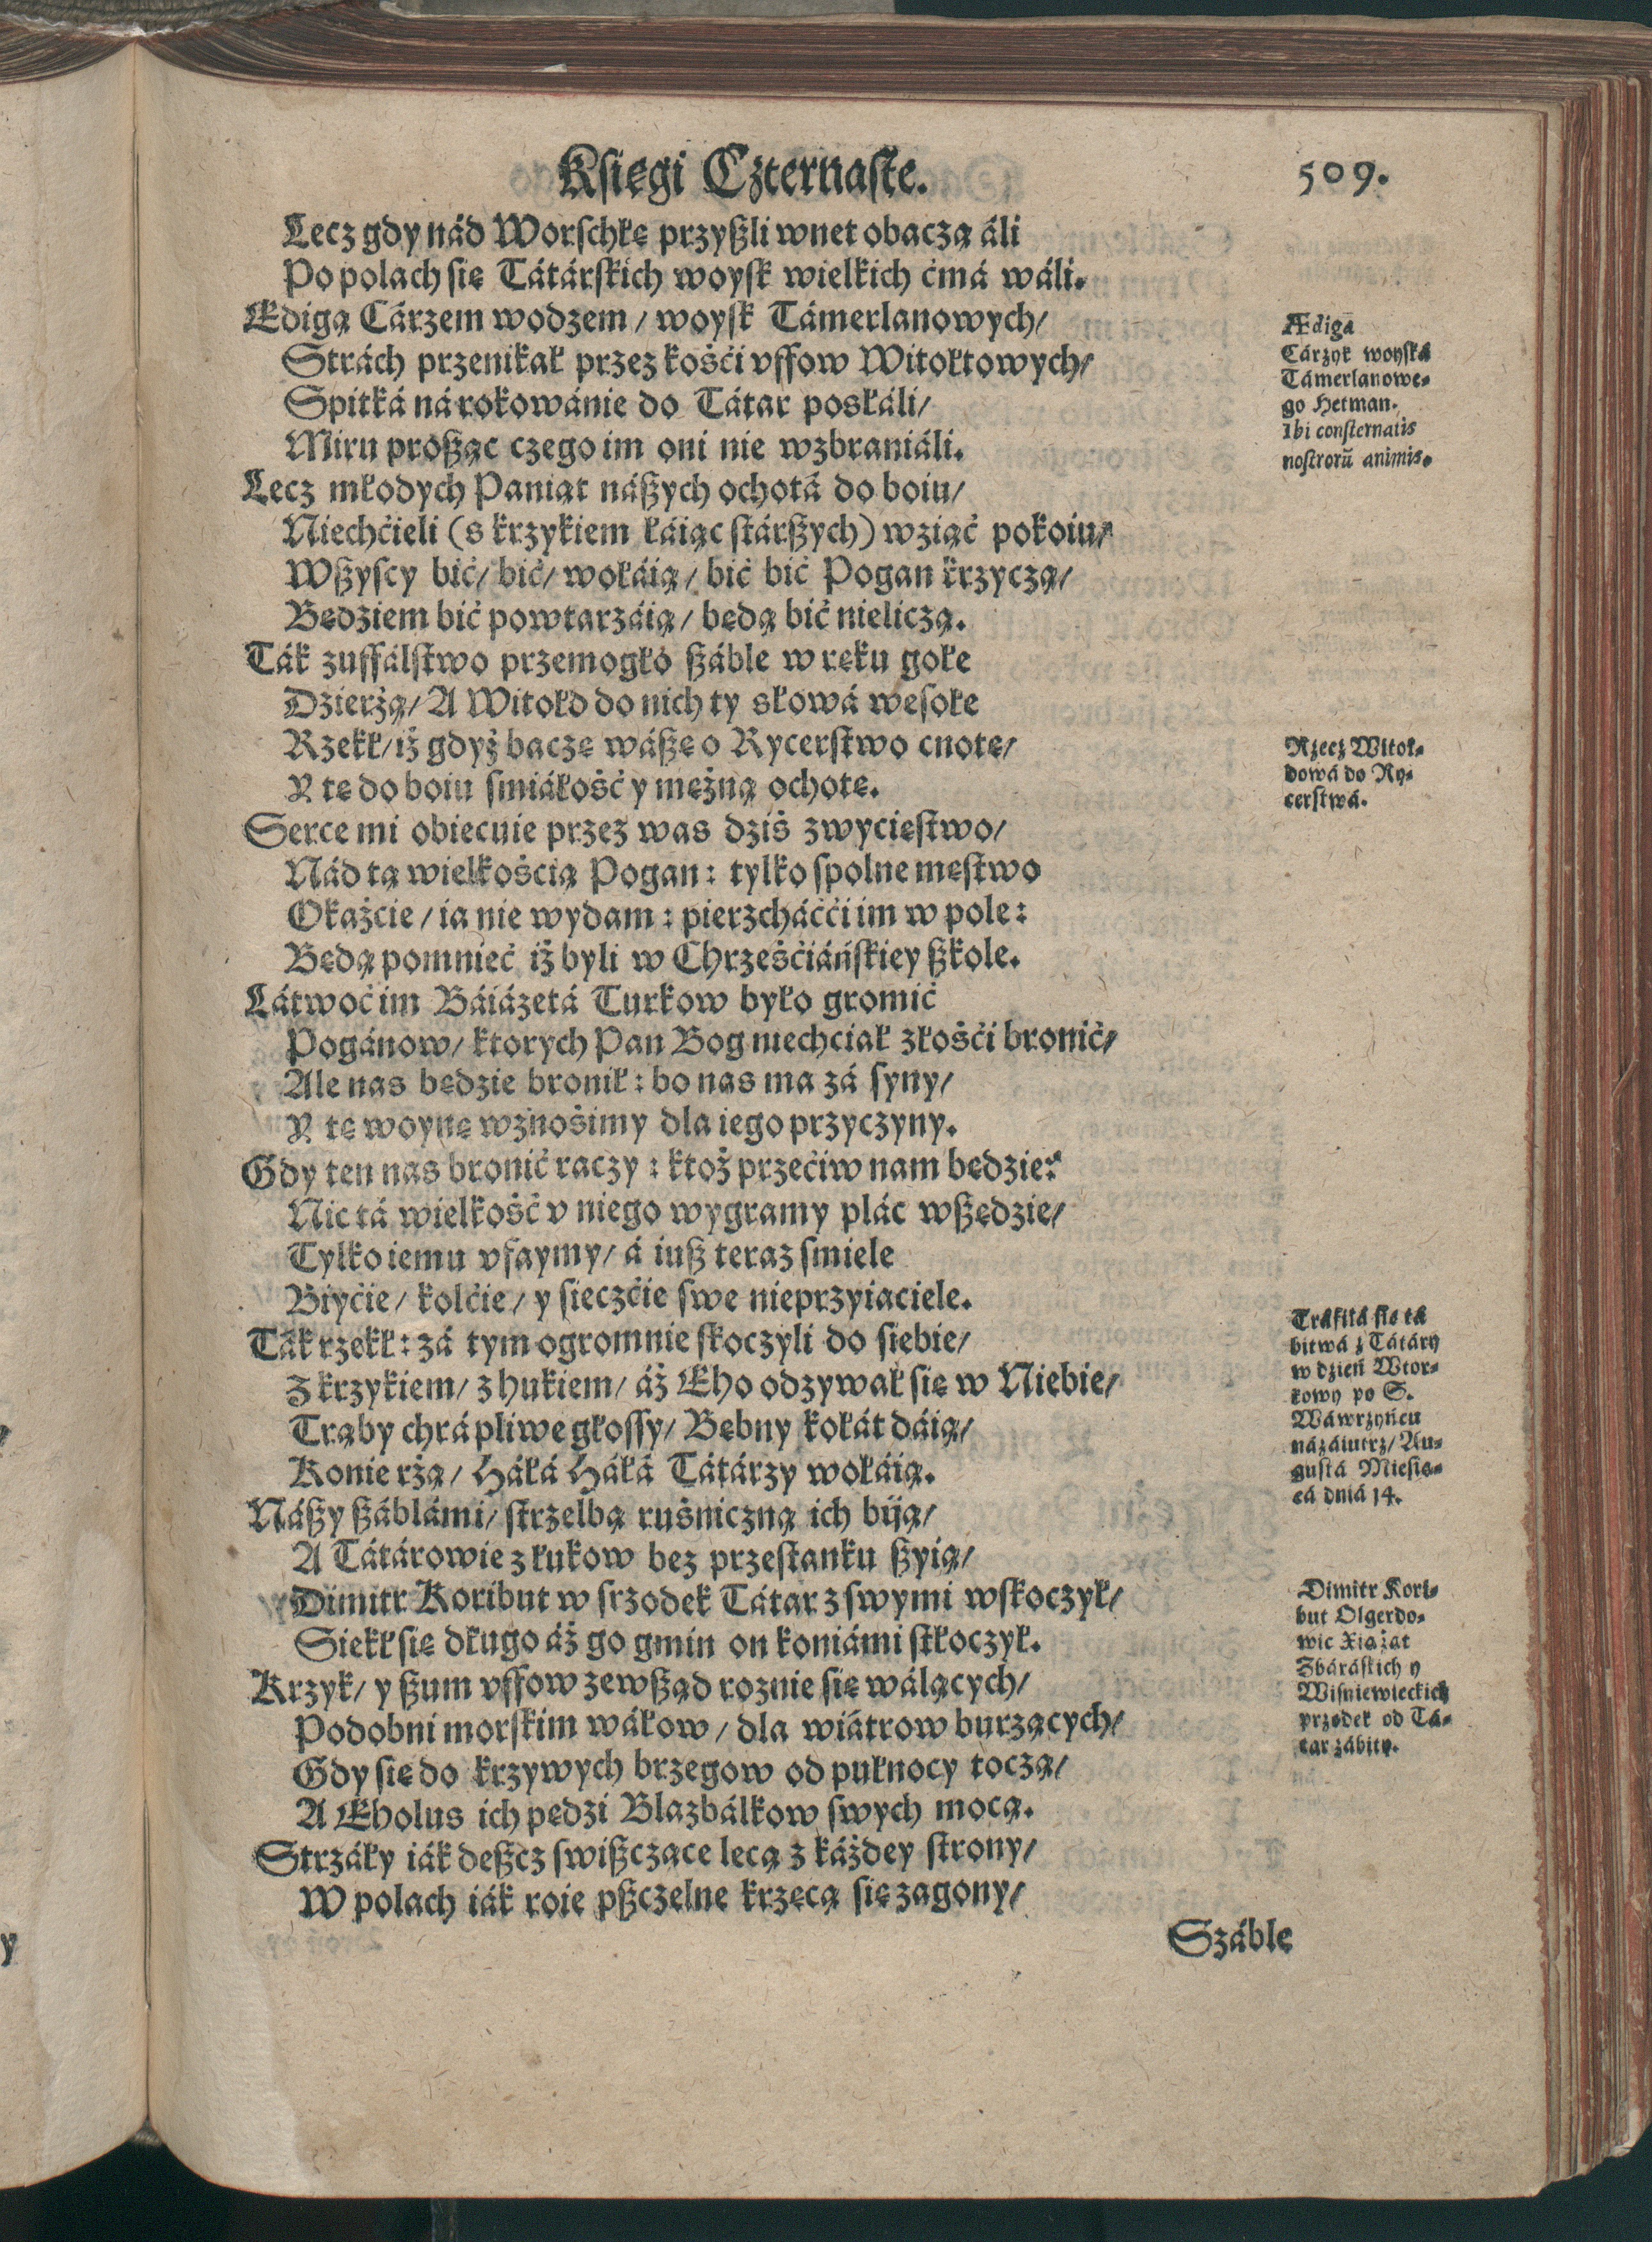 Księgi Czternaste. 509.
Lecz gdy nád Worſchłę przyßli wnet obaczą áli
Po polach się Tátárſkich woyſk wielkich ćmá wáli.
Edigą Cárzem wodzem / woyſk Támerlanowych /
Strách przenikał przez kośći vffow Witołtowych /
Spitká ná rokowánie do Tátar posłáli /
Miru proßąc czego im oni nie wzbraniáli.
Lecz młodych Paniąt náßych ochotá do boiu /
Niechćieli (s krzykiem łáiąc ſtárßych) wziąć pokoiu /
Wßyſcy bić / bić / wołáią / bić bić Pogan krzyczą /
Będziem bić powtarzáią / będą bić nieliczą.
Ták zuffálſtwo przemogło ßáble w ręku gołe
Dzierżą / A Witołd do nich ty słowá weſołe
Rzekł / iż gdyż baczę wáßę o Rycerſtwo cnotę /
Y tę do boiu ſmiáłość y mężną ochotę.
Serce mi obiecuie przez was dziś zwycięſtwo /
Nád tą wielkością Pogan : tylko ſpolne męſtwo
Okażcie / ia nie wydam : pierzcháćći im w pole :
Będą pomnieć iż byli w Chrześćiáńſkiey ßkole.
Látwoć im Báiázetá Turkow było gromić
Pogánow / ktorych Pan Bog niechciał złośći bronić /
Ale nas będzie bronił : bo nas ma zá ſyny /
Y tę woynę wznośimy dla iego przyczyny.
Gdy ten nas bronić raczy : ktoż przećiw nam będzie?
Nic tá wielkość v niego wygramy plác wßędzie /
Tylko iemu vfaymy / á iuß teraz ſmiele
Biyćie / kolćie / y ſieczćie ſwe nieprzyiaciele.
Ták rzekł : zá tym ogromnie ſkoczyli do siebie /
Z krzykiem / z hukiem / áż Eho odzywał się w Niebie /
Trąby chrápliwe głoſſy / Bębny kołát dáią /
Konie rżą / Háłá Háłá Tátárzy wołáią.
Náßy ßáblámi / ſtrzelbą ruśniczną ich biją /
A Tátárowie z łukow bez przeſtanku ßyią /
Dimitr Koribut w ſrzodek Tátar z ſwymi wſkoczył /
Siekł się długo áż go gmin on koniámi ſtłoczył.
Krzyk / y ßum vffow zewßąd roznie się wálących /
Podobni morſkim wáłow / dla wiátrow burzących /
Gdy się do krzywych brzegow od pułnocy toczą /
A Eholus ich pędzi Blazbálkow ſwych mocą.
Strzáły iák deßcz ſwißczące lecą z káżdey ſtrony /
W polach iák roie pßczelne krzęcą się zagony /
Száble
Ædigá
Cárzyk woyſká
Támerlanowe-
go Hetman.
Ibi conſternatis
noſtrorū animis.
Rzecz Witoł-
dowá do Ry-
cerſtwá.
Tráfiłá się tá
bitwá z Tátáry
w dzień Wtor-
kowy po S.
Wáwrzyńcu
názáiutrz / Au-
guſtá Mieśią-
cá dniá 14.
Dimitr Kori-
but Olgerdo-
wic Xiążąt
Zbáráſkich y
Wiſniewieckich
przodek od Tá-
tar zábity.